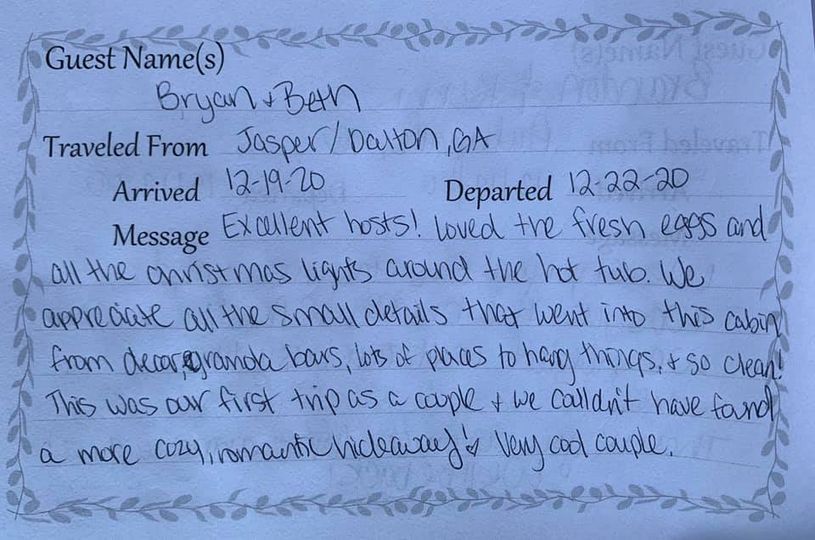 Guest Name(s)
Bryan & Beth
Traveled From Jasper/Dalton, GA
Arrived 12-19-20 Departed 12-22-20
Message Excellent hosts! Loved the fresh eggs and
all the christmas lights around the hot tub. We
appreciate all the small details that went into this cabin
from decor, granola bars, lots of places to hang things, & so clean!
This was our first trip as a couple & we couldn't have found
a more cozy, romantic hideaway! Very cool couple.